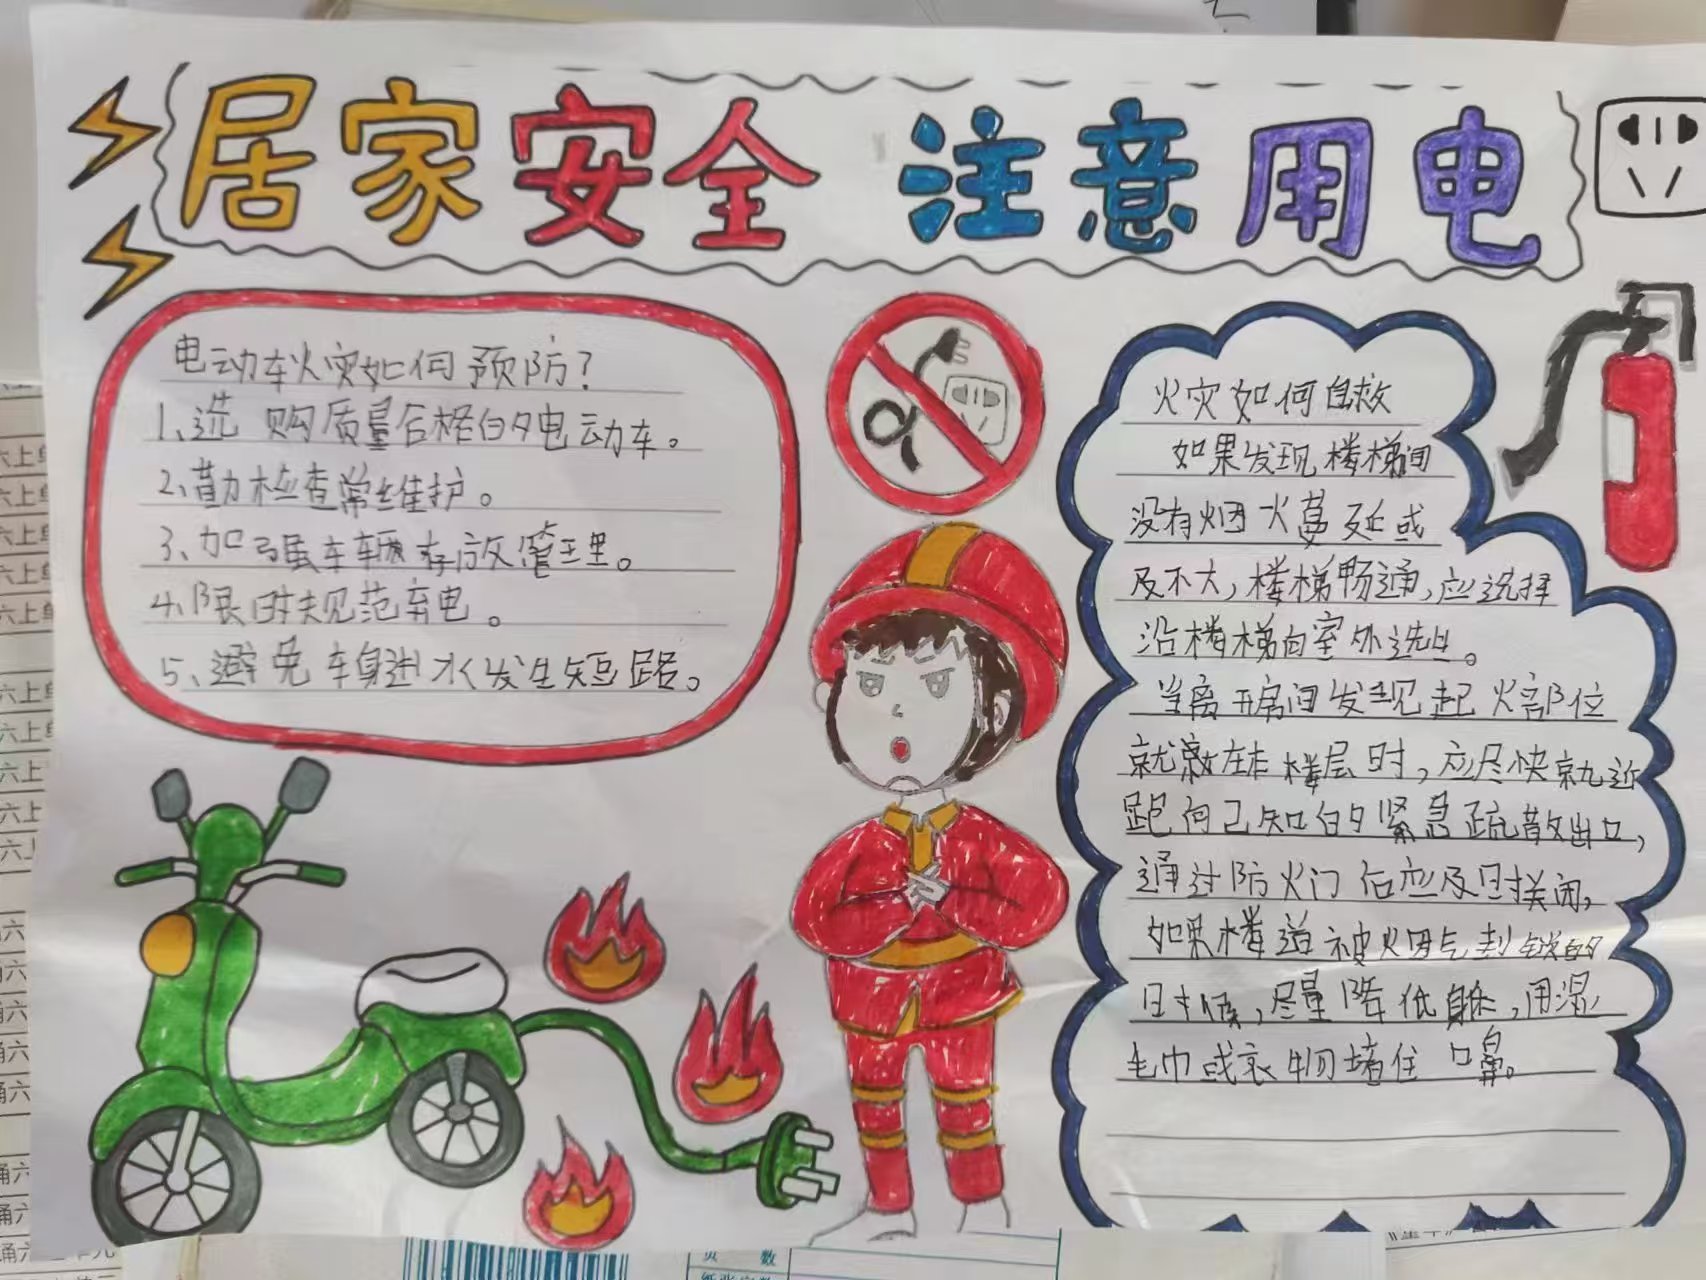 居家安全 注意用电
电动车火灾如何预防？
1、选购质量合格的电动车。
2、勤检查常维护。
3、加强车辆存放管理。
4、限时规范充电。
5、避免车身进水发生短路。
火灾如何自救
如果发现楼梯间
没有烟火蔓延或
及不大，楼梯畅通，应选择
沿楼梯向室外逃生。
当离开房间发现起火部位
就在楼层时，应尽快就近
跑向已知的紧急疏散出口，
通过防火门后应及时关闭，
如果楼道被烟气封锁的
时候，尽量降低身体，用湿
毛巾或衣物堵住口鼻。
页 数